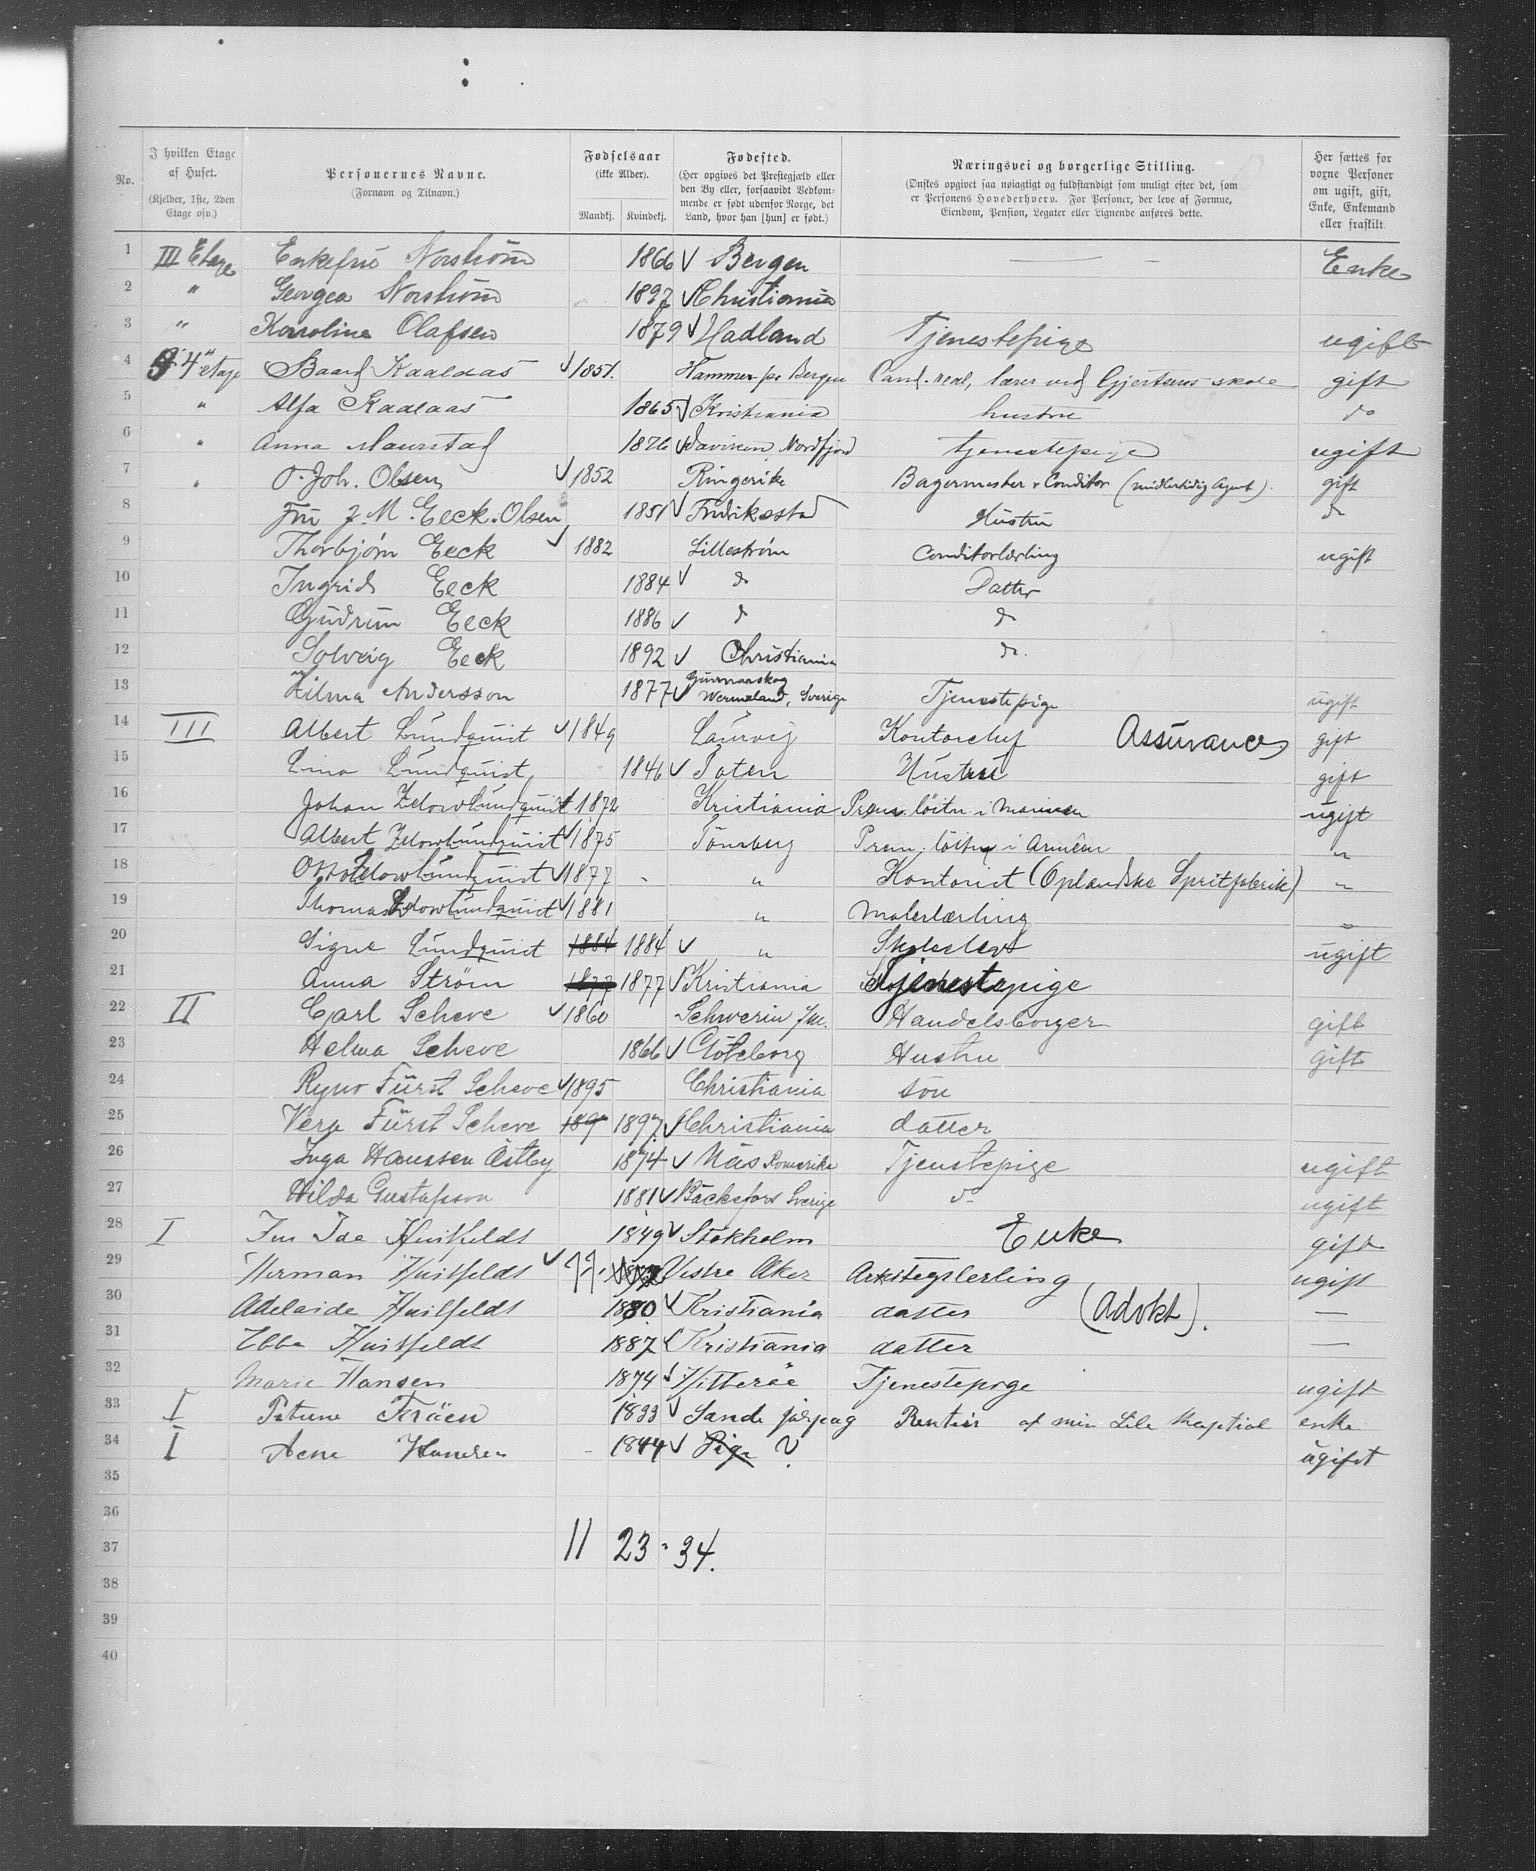 No.
I hvilken Etage af Huset. (Kjelder, 1ste, 2den Etage osv.)
Personernes Navne. (Fornavn og Tilnavn.)
Fødselsaar (ikke Alder). Mandkj. Kvindekj.
Fødested. (Her opgives det Prestegjæld eller den By eller, forsaavidt Vedkommende er født udenfor Norge, det Land, hvor han [hun] er født.)
Næringsvei og borgerlige Stilling. (Ønskes opgivet saa nøiagtigt og fuldstændigt som muligt efter det, som er Personens Hovederhverv. For Personer, der leve af Formue, Eiendom, Pension, Legater eller Lignende anføres dette.
Her sættes for voxne Personer om ugift, gift, Enke, Enkemand eller fraskilt
1 III Etage Enkefru Norstrøm 1866 Bergen — — Enke
2 " Georgea Norstrøm 1897 Christiania
3 " Karoline Olafsen 1879 Hadland Tjenestepige ugift
4 4" etage Baard Kaalaas 1851. Hammer pr Bergen Cand. real, lærer ved Gjertsens skole gift
5 " Alfa Kaalaas 1865 Kristiania hustru do
6 " Anna Maurstad 1876 Daviken, Nordfjord tjenestepige ugift
7 " O. Joh. Olsen 1852 Ringerike Bagermester & Conditor (midlertidig Agent). gift
8 Fru J. M. Eeck-Olsen 1851 Fredriksstad Hustru do
9 Thorbjørn Eeck 1882 Lillestrøm Conditorlærling ugift
10 Ingrid Eeck 1884 do Datter
11 Gudrun Eeck 1886 do do
12 Solveig Eeck 1892 Christiania do.
13 Hilma Andersson 1877 Gunnarskog Wermeland, Sverige Tjenestepige ugift
14 III Albert Lundquist 1849 Laurvig Kontorchef Assurance gift
15 Lina Lundquist 1846 Toten Hustru gift
16 Johan Zelow Lundquist 1872 Kristiania Prem. löitn i Marinen ugift
17 Albert Zelow Lundquist 1875 Tönsberg Prem. löitn i Arméen "
18 Otto Zelow Lundquist 1877 - " Kontorist (Oplandske Spritfabrik) "
19 Thomas Zelow Lundquist 1881 " Malerlærling "
20 Signe Lundquist 1884 1884 " Skoleelev ugift
21 Anna Ström 1877 1877 Kristiania Tjenestepige
22 II Carl Scheve 1860 Schwerin Handelsborger gift
23 Helma Scheve 1866 Göteborg Hustru gift
24 Fürst Scheve 1895 Christiania sön
25 Vera Fürst Scheve 189 1897 Christiania datter
26 Inga Hanssen Østby 1874 Näs Romerike Tjenstepige ugift
27 Hilda Gustafsson 1881 Bäckefors Sverige do ugift
28 I Fru Ida Huitfeldt 1849 Stokholm Enke gift
29 Herman Huitfeldt 77. Vestre Aker ugift
30 Adelaide Huitfeldt 1880 Kristiania datter (Advkt). —
31 Ebba Huitfeldt 1887 Kristiania datter —
32 Marie Hansen 1874 Hitteröe Tjenestepige ugift
33 I 1833 Sande Rentier af min Lile Kapital enke
34 I 1844 Pige ? ugift
35
36
37 11 23 - 34.
38
39
40